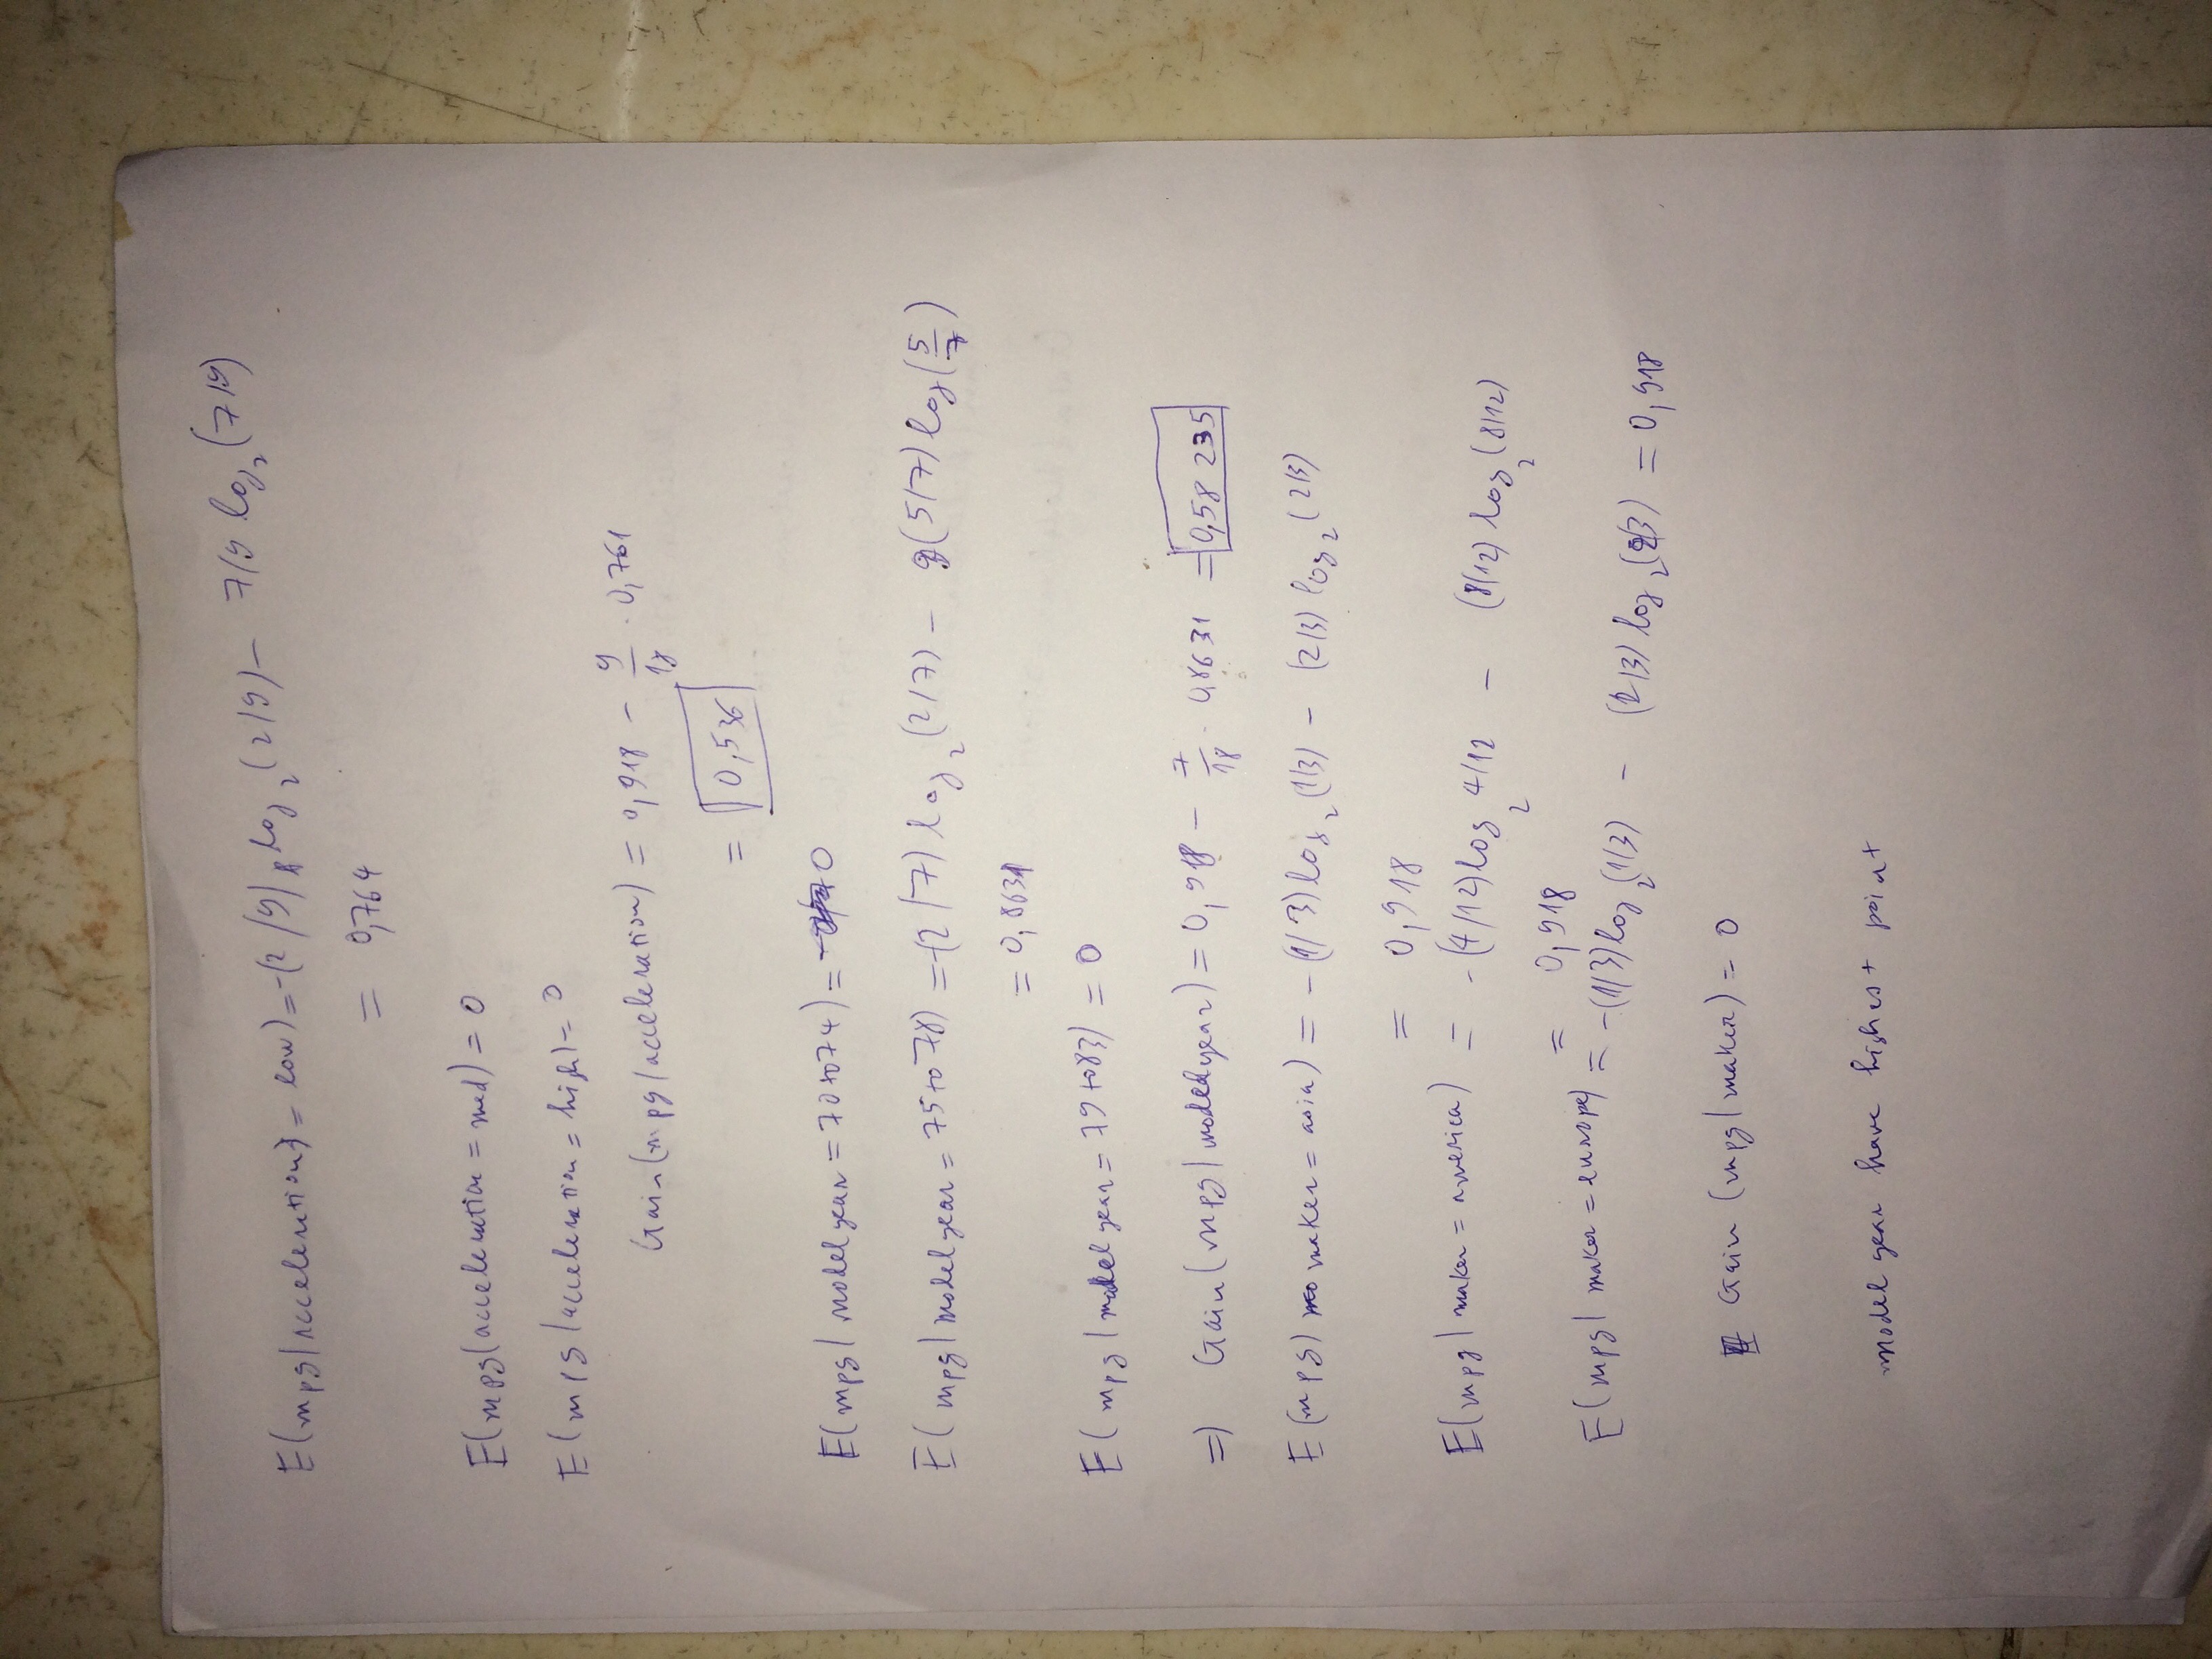 E(mpg|acceleration) = low) = -(2/9) log₂(2/9) - 7/9 log₂(7/9)
= 0,764
E(mpg|acceleration = med) = 0
E(mpg|acceleration = high) = 0
Gain(mpg/acceleration) = 0,918 - 9/18 · 0,761
= 0,536
E(mpg| modelyear = 70to74) = 0
E(mpg|modelyear = 75to78) = -(2/7) log₂(2/7) - (5/7) log(5/7)
= 0,8631
E(mpg|modelyear = 79to83) = 0
=) Gain(mpg|modelyear) = 0,918 - 7/18 · 0,8631 = 0,58235
E(mpg) maker = asia) = -(1/3) log₂(1/3) - (2/3) log₂(2/3)
= 0,918
E(mpg| maker = america) = -(4/12) log₂ 4/12 - (8/12) log₂(8/12)
= 0,918
E(mpg| maker = europe) = -(1/3) log₂(1/3) - (2/3) log₂(2/3) = 0,918
Gain (mpg|maker) = 0
model year have highest point